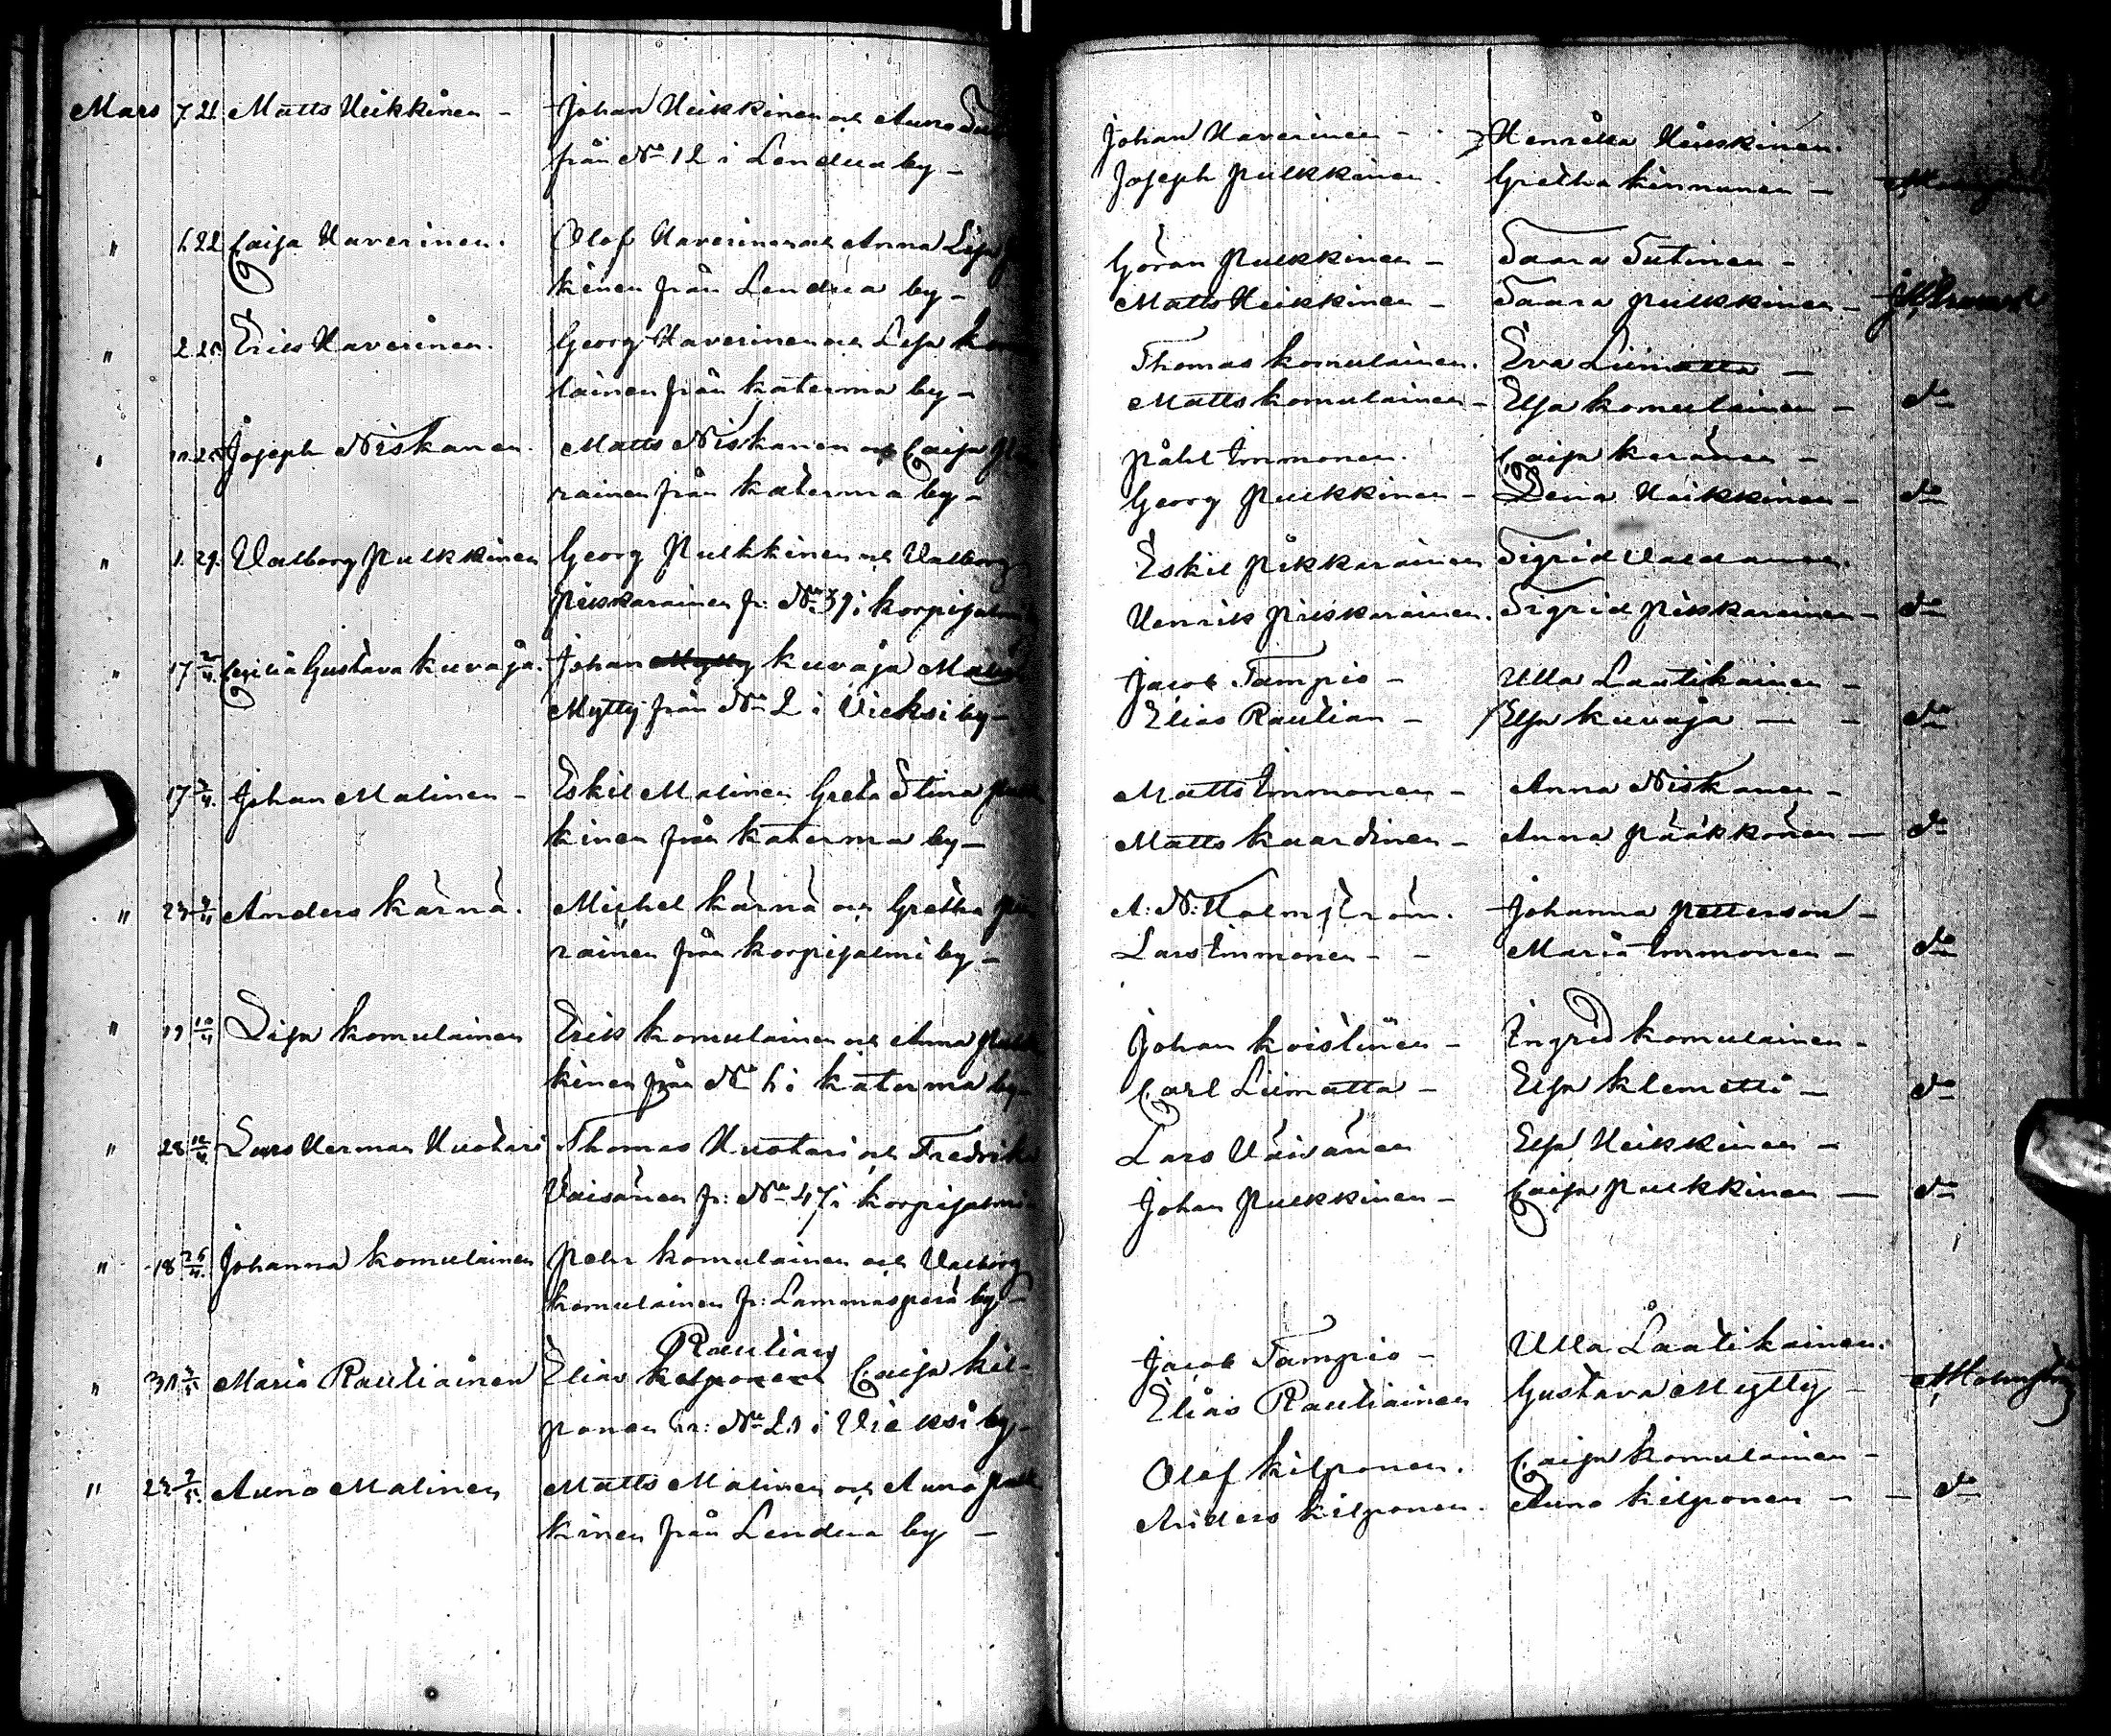 Mars 7 21 Matts Heikkinen - Johan Heikkinen och Anna
från No 12 i Lendua by -
" 6 22 Caisa Haverinen. Olof Haverinen och Anna Lisa
kinen från Lendua by -
" 2 25 Eric Haverinen. Georg Haverinen och Lisa
lainen från Katerma by -
" 25 Joseph Niskanen. Matts Niskanen och Caisa
rainen från Katerma by -
" 1. 29. Valborg Pulkkinen Georg Pulkkinen och Valborg
Piiskarainen fr: No 39 i Korpisalmi
" 17 Cecilia Gustava Kuvaja. Johan Mytty Kuvaja
Mytty från No 2 i Vieksi by -
17 3/4. Johan Malinen - Eskil Malinen Greta Stina
kinen från Katerma by -
" 23 Anders Kärnä. Michel Kärnä och Gretha
rainen från Korpisalmi by -
" 19 10/4 Lisa Komulainen Eric Komulainen och Anna
kinen från No 6 i Katerma by -
" 28 12/4. Lars Herman Huotari Thomas Huotari och Fredrika
Väisänen fr: No 47 i Korpisalmi
" 18 26/4. Johanna Komulainen Pehr Komulainen och Valborg
Komulainen fr: Lammasperä by -
Rautian
" 31 Maria Rautiainen Elias Kilponen Caisa Kil-
ponen fr: No 21 i Vieksi by -
" 23 Anna Malinen Matts Malinen och Anna
kinen från Lendua by -
Johan Haverinen - Henrikka Heiskinen.
Joseph Pulkkinen. Gretha Kinnunen -
Göran Pulkkinen - Saara Sutinen -
Matts Heikkinen - Saara Pulkkinen -
Thomas Komulainen. Eva Liimatta -
Matts Komulainen - Elsa Komulainen - do
Påhl Immonen. Caisa Keränen -
Georg Pulkkinen - Lena Heikkinen - do
Eskil Pikkarainen Sigrid
Henrik Piiskarainen. Sigrid Piiskarainen - do
Jacob Tampio - Ulla Laatikainen -
Elias Rautian - Elsa Kuvaja - - do
Matts Immonen - Anna Niskanen -
Matts Kaardinen - Anna Pääkkönen - do
A: N: Holmström. Johanna Petterson -
Lars Immonen - - Maria Immonen - do
Johan Koistinen - Ingrid Komulainen -
Carl Liimatta - Elsa Klemetti - do
Lars Väisänen Elsa Heikkinen -
Johan Pulkkinen - Caisa Pulkkinen - do
Jacob Tampio - Ulla Laatikainen.
Elias Rautiainen Gustava Mytty -
Olof Kilponen. Caisa Komulainen -
Anders Kilponen. Anna Kilponen - - do